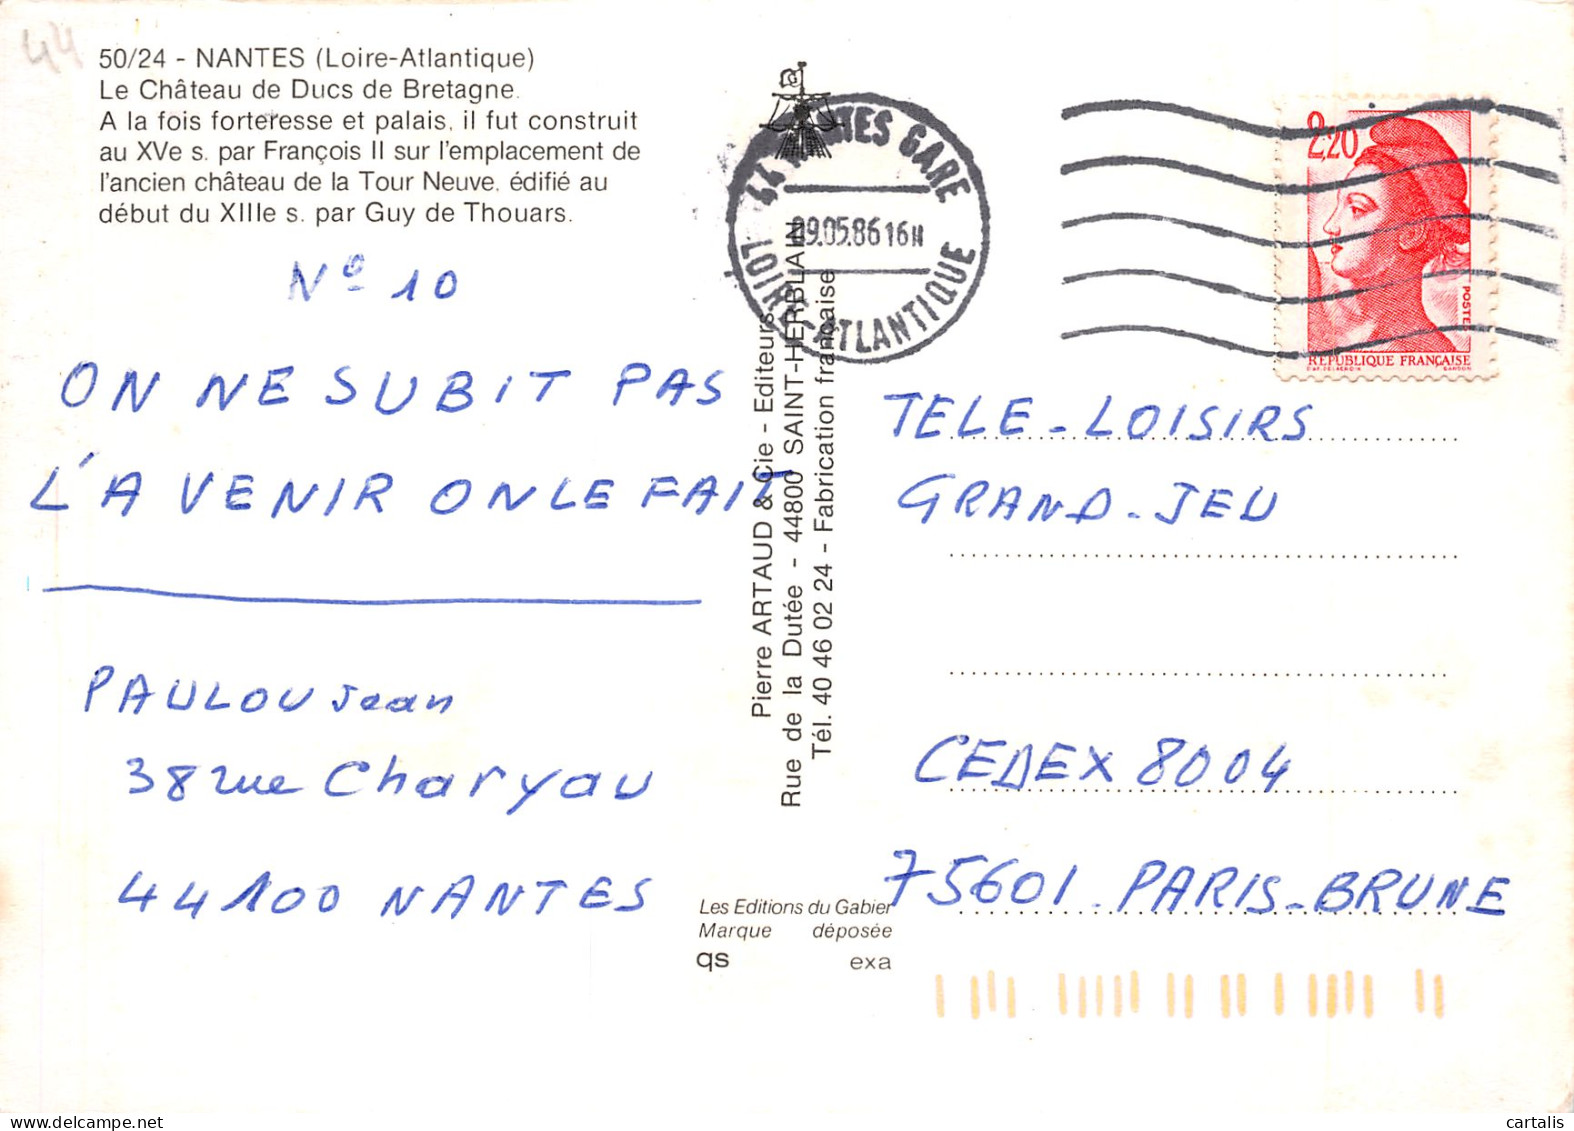 44
50/24 - NANTES (Loire-Atlantique)
Le Château de Ducs de Bretagne.
A la fois forteresse et palais, il fut construit
au XVe s. par François II sur l'emplacement de
l'ancien château de la Tour Neuve, édifié au
début du XIIIe s. par Guy de Thouars.
N° 10
ON NE SUBIT PAS
L'AVENIR ON LE FAIT
PAULOU Jean
38 rue Charyau
44100 NANTES
Pierre ARTAUD & Cie - Editeurs
Rue de la Dutée - 44800 SAINT-HERBLAIN
Tél. 40 46 02 24 - Fabrication française
Les Editions du Gabier
Marque déposée
qs exa
44 NANTES GARE
09.05.86 16H
LOIRE ATLANTIQUE
2,20
POSTES
REPUBLIQUE FRANÇAISE
TELE-LOISIRS
GRAND-JEU
CEDEX 8004
75601-PARIS-BRUNE
cartalis.com